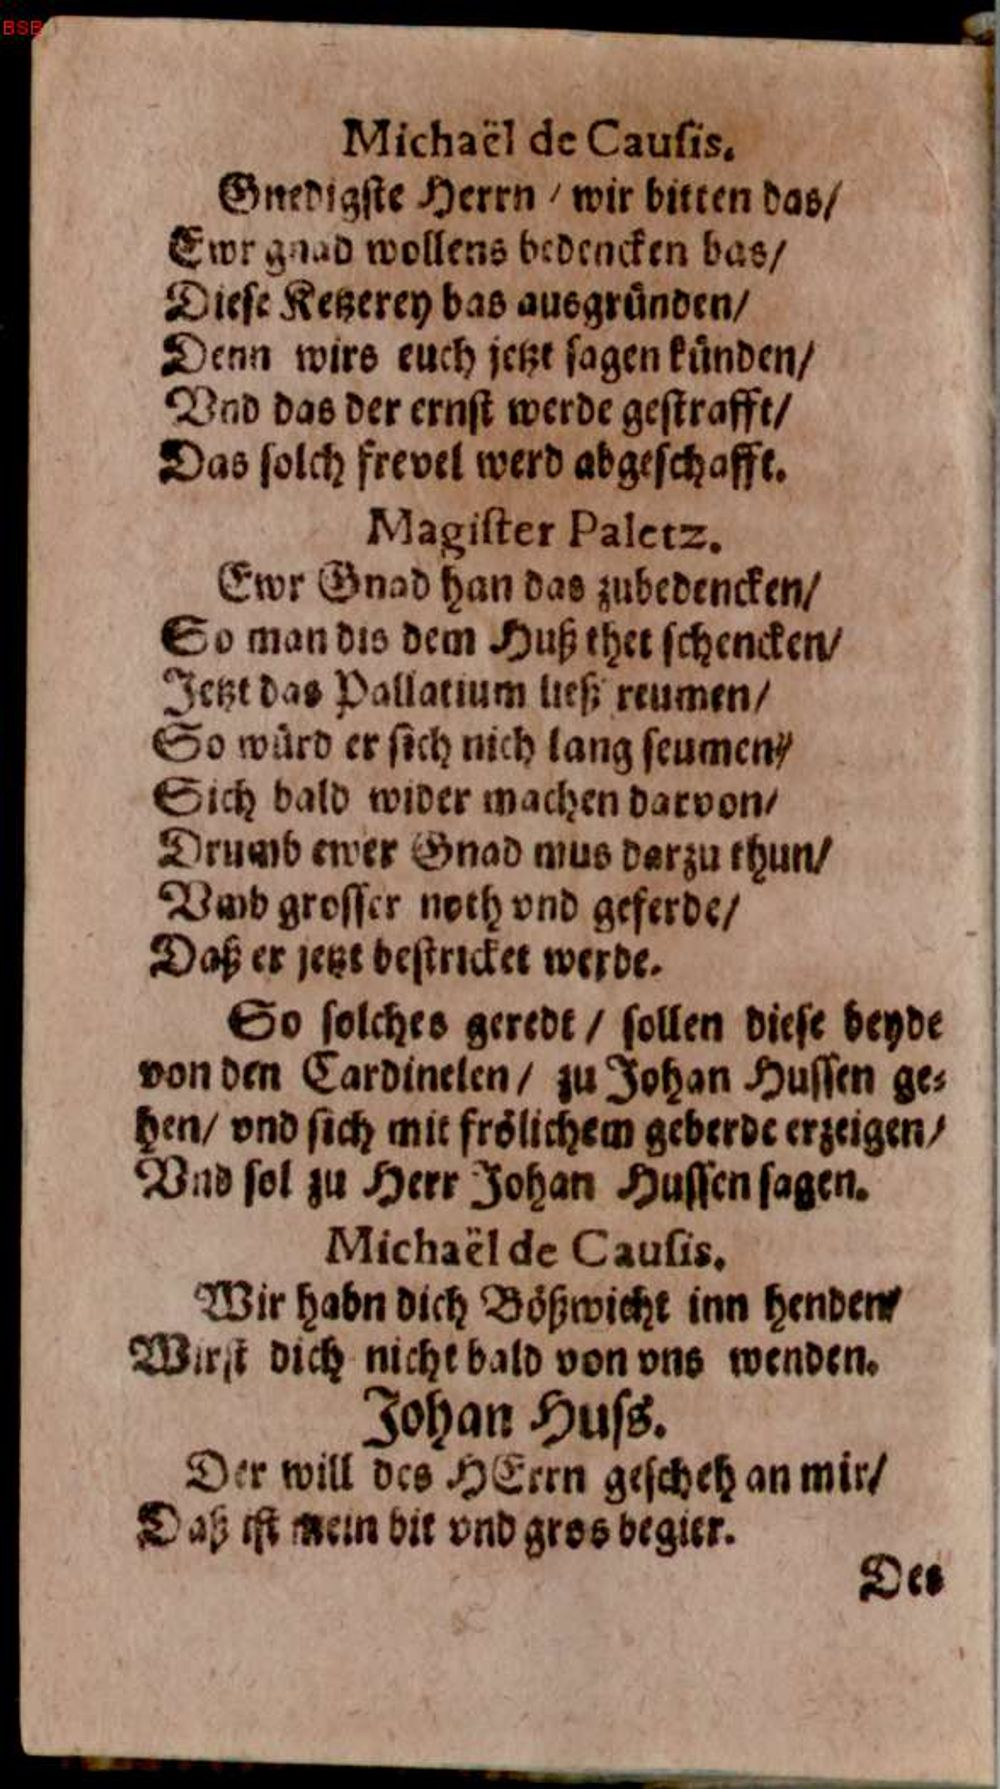 BSB
Michaël de Cauſis.
Gnedigſte Herrn / wir bitten das/
Ewr gnad wollens bedencken bas/
Dieſe Ketzerey bas ausgruͤnden/
Denn wirs euch jetzt ſagen kuͤnden/
Vnd das der ernſt werde geſtrafft/
Das ſolch frevel werd abgeſchafft.
Magiſter Paletz.
Ewr Gnad han das zubedencken/
So man dis dem Huß thet ſchencken/
Jetzt das Pallatium ließ reumen/
So wuͤrd er ſich nich lang ſeumen/
Sich bald wider machen darvon/
Drumb ewer Gnad mus darzu thun/
Vmb groſſer noth vnd geferde/
Daß er jetzt beſtricket werde.
So ſolches geredt / ſollen dieſe beyde
von den Cardinelen / zu Johan Huſſen ge⸗
hen/ vnd ſich mit froͤlichem geberde erzeigen/
Vnd ſol zu Herr Johan Huſſen ſagen.
Michaël de Cauſis.
Wir habn dich Boͤßwicht inn henden/
Wirſt dich nicht bald von vns wenden.
Johan Huſs.
Der will des HErrn geſcheh an mir/
Daß iſt mein bit vnd gros begier.
Des